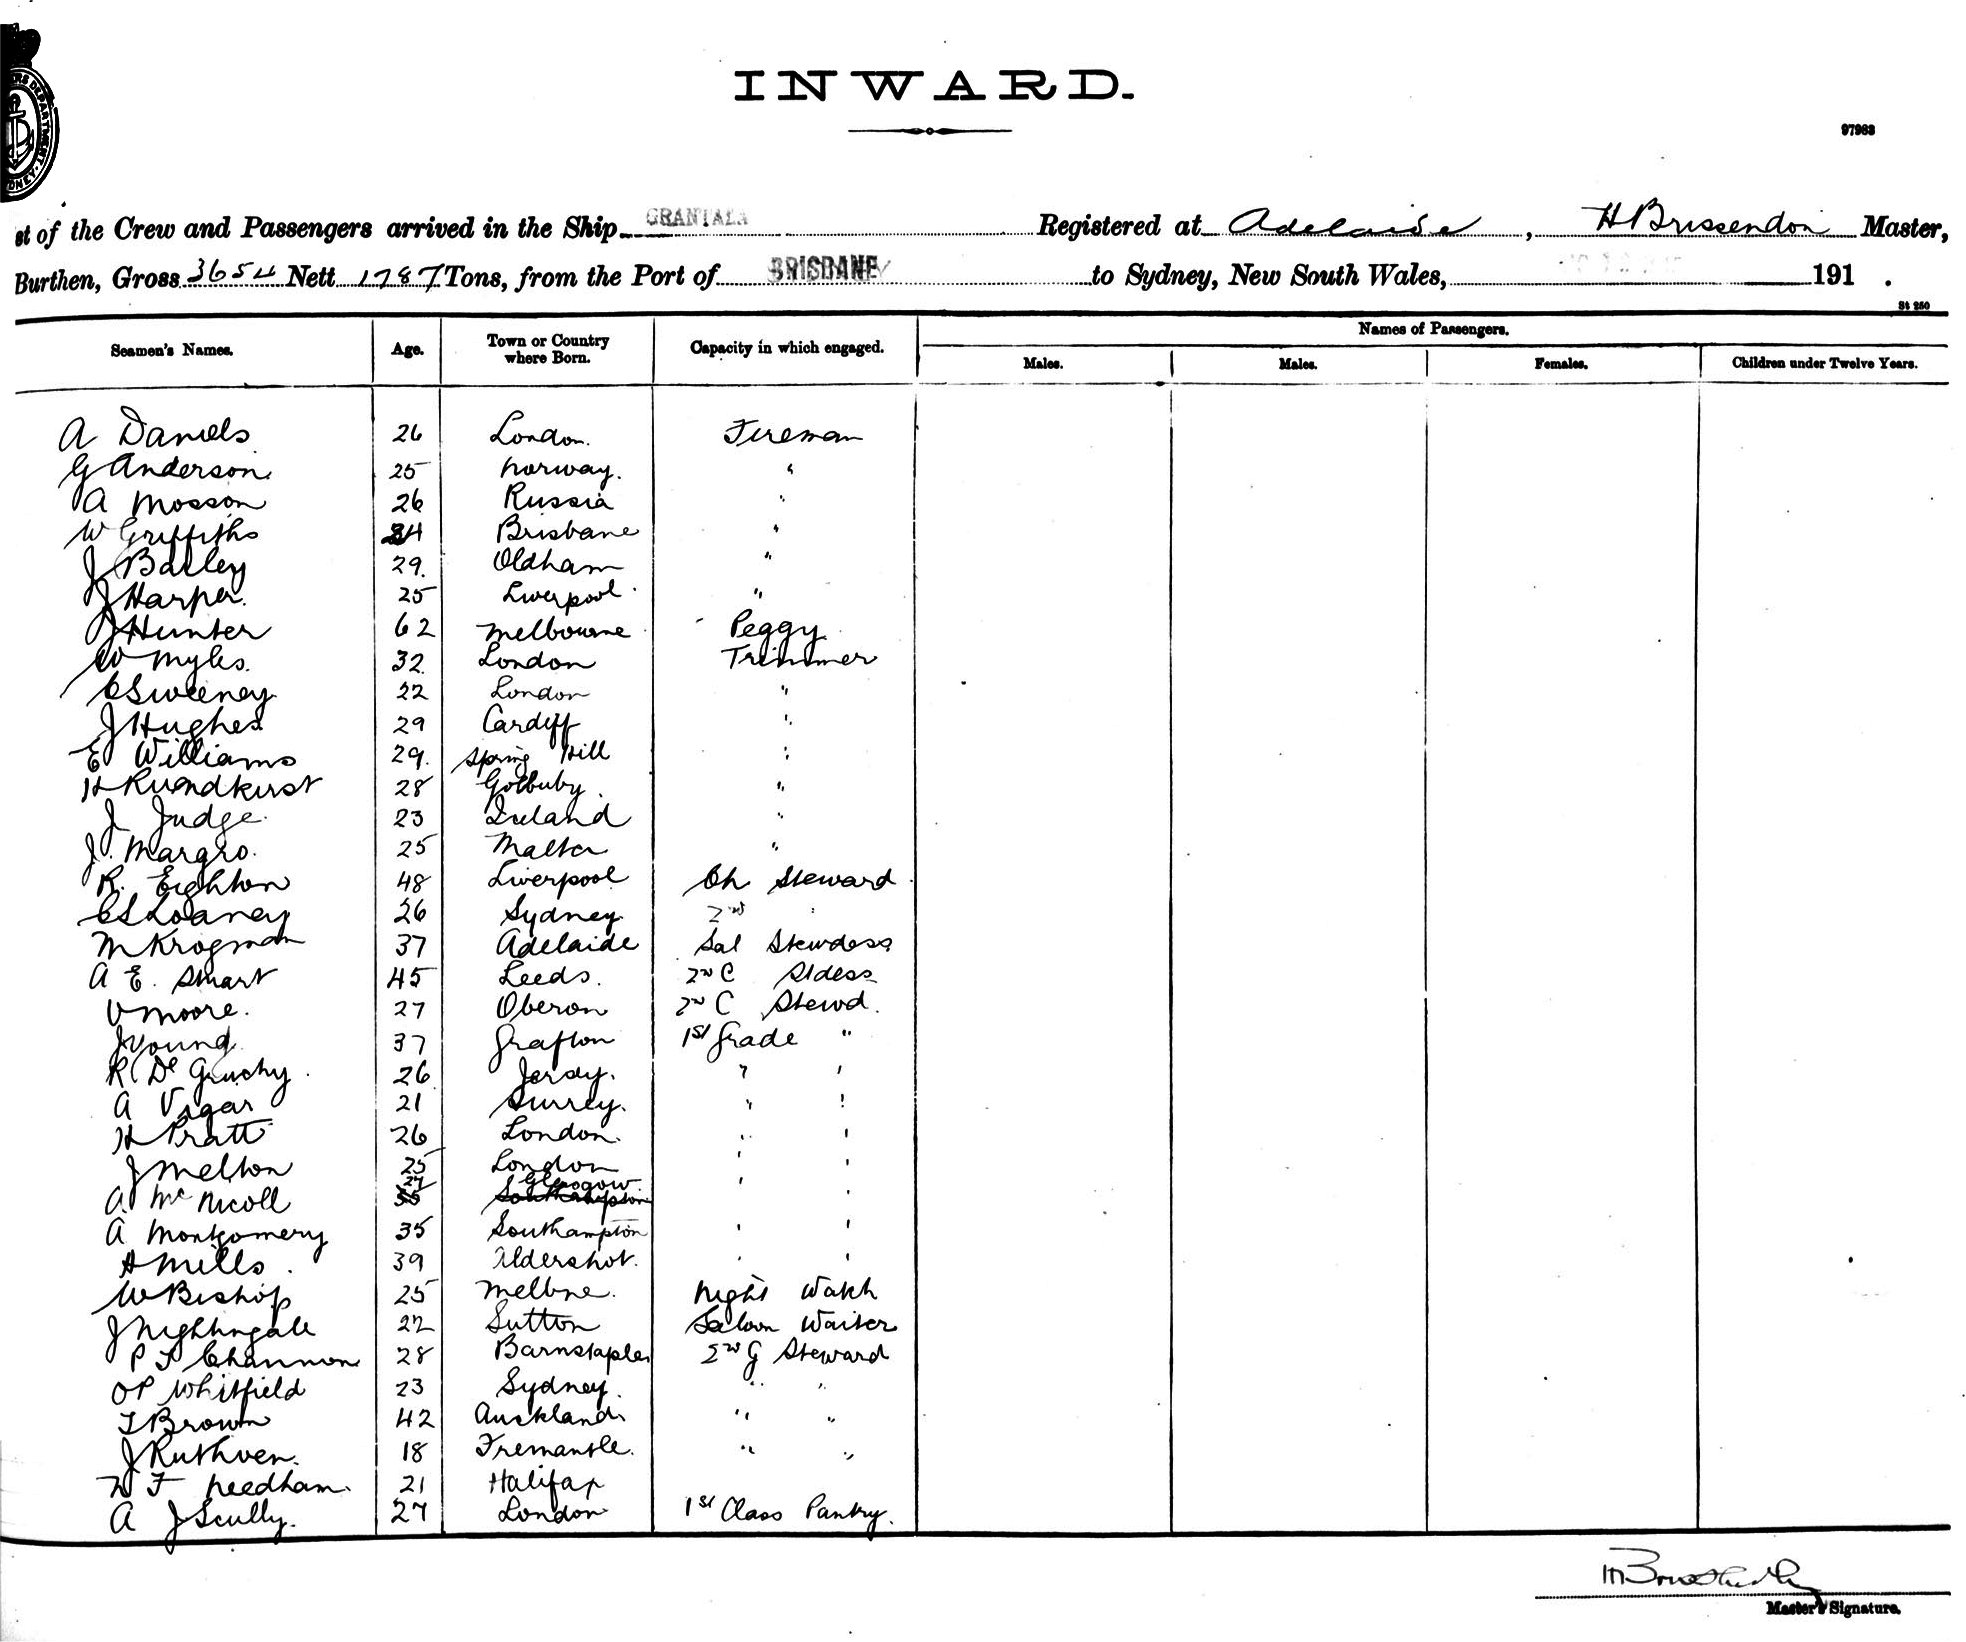 INWARD.
97963
st of the Crew and Passengers arrived in the Ship GRANTALA Registered at Adelaide, H Brissenden Master,
Burthen, Gross 3654 Nett 1787 Tons, from the Port of BRISBANE to Sydney, New South Wales, 191 .
St 250
Seamen's Names. Age. Town or Country where Born. Capacity in which engaged. Names of Passengers.
Males. Males. Females. Children under Twelve Years.
A Daniels 26 London. Fireman
G Anderson 25 Norway. "
A Mosson 26 Russia "
W Griffiths 34 Brisbane "
J Bailey 29. Oldham "
J Harper. 25 Liverpool "
J Hunter 62 Melbourne Peggy
W Myles. 32 London Trimmer
C Sweeney 22 London "
J Hughes 29 Cardiff "
E Williams 29. Spring Hill "
H Rundkirst 28 "
J Judge. 23 Ireland "
J. Margro. 25 Malta "
R. Eighton 48 Liverpool Ch Steward
C S Loaney 26 Sydney 2nd "
M Krogman 37 Adelaide Sal Stewdess
A E. Stuart 45 Leeds. 2nd C Stdess
V Moore. 27 Oberon 2nd C Stewd.
J Young 37 Grafton 1st Grade "
R De Gruchy 26 Jersy. " "
A Vigar 21 Surrey. " "
H Pratt 26 London. " "
J Melton 25 London " "
A McNicoll 27 Glasgow " "
A Montgomery 35 Southampton " "
H Mills. 39 Aldershot. " "
W Bishop 25 Melbne. Night Watch
J Nightingale 22 Sutton Saloon Waiter
P J Channon 28 Barnstaple 2nd G Steward
O P Whitfield 23 Sydney. " "
T Brown 42 Auckland " "
J Ruthven. 18 Fremantle. " "
W F Needham. 21 Halifax
A J Scully. 27 London 1st Class Pantry.
Master's Signature.